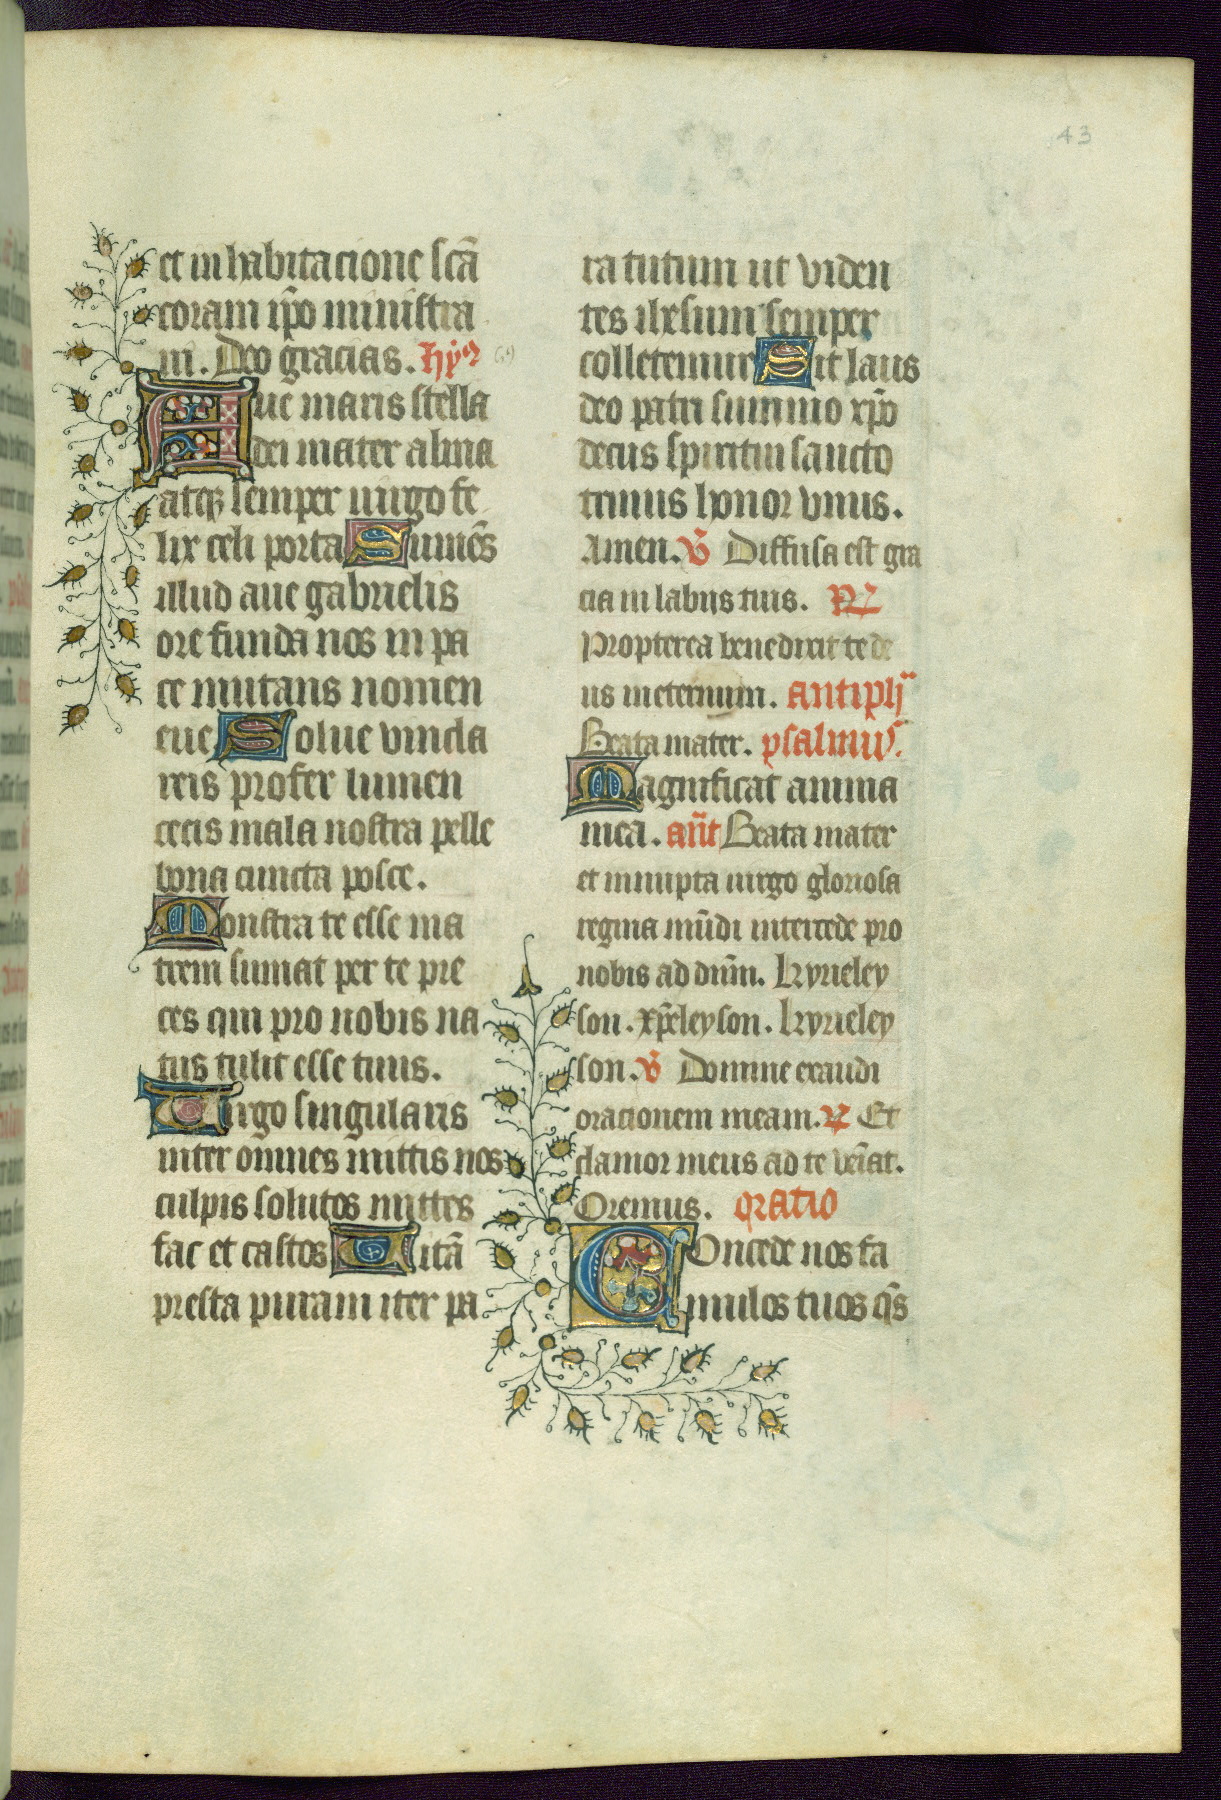 43
et in habitacione scā
coram ip̄o ministra
ui. Deo gracias. hȳ
Aue maris stella
dei mater alma
atqꝫ semper uirgo fe
lix celi porta Sumēs
illud aue gabrielis
ore funda nos in pa
ce mutans nomen
eue Solue vincla
reis profer lumen
cecis mala nostra pelle
bona cuncta posce.
Monstra te esse ma
trem sumat per te pre
ces qui pro nobis na
tus tulit esse tuus.
Uirgo singularis
inter omnes mittis nos
culpis solutos mittes
fac et castos Uitā
presta puram iter pa
ra tutum ut viden
tes ihesum semper
colletemur Sit laus
deo patri summo xp̄o
decus spiritui sancto
trinus honor vnus.
Amen. ℣ Diffusa est gra
cia in labiis tuis. ℞
Propterea benedixit te de
us ineternum. antiph
Beata mater. psalmus.
Magnificat anima
mea. añt Beata mater
et innupta uirgo gloriosa
regina mūdi intercede pro
nobis ad dūm. Kyrieley
son. xp̄eleyson. kyrieley
son. ℣ Domine exaudi
oracionem meam. ℞ Et
clamor meus ad te veniat.
Oremus. oratio
Concede nos fa
mulos tuos q̄s